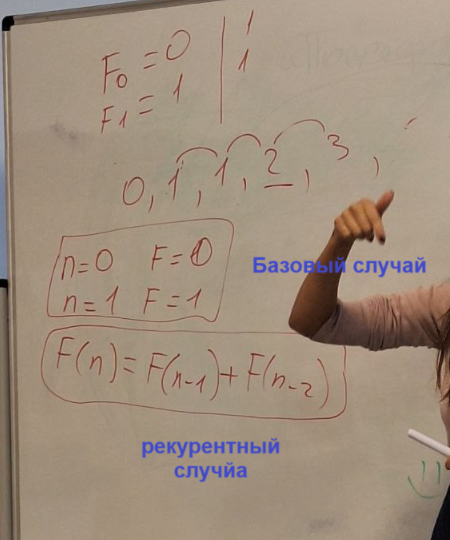 F₀ = 0 | 1
F1 = 1 | 1
0, 1, 1, 2, 3,
n=0 F=0
n=1 F=1
Базовый случай
F(n) = F(n-1) + F(n-2)
рекурентный
случйа